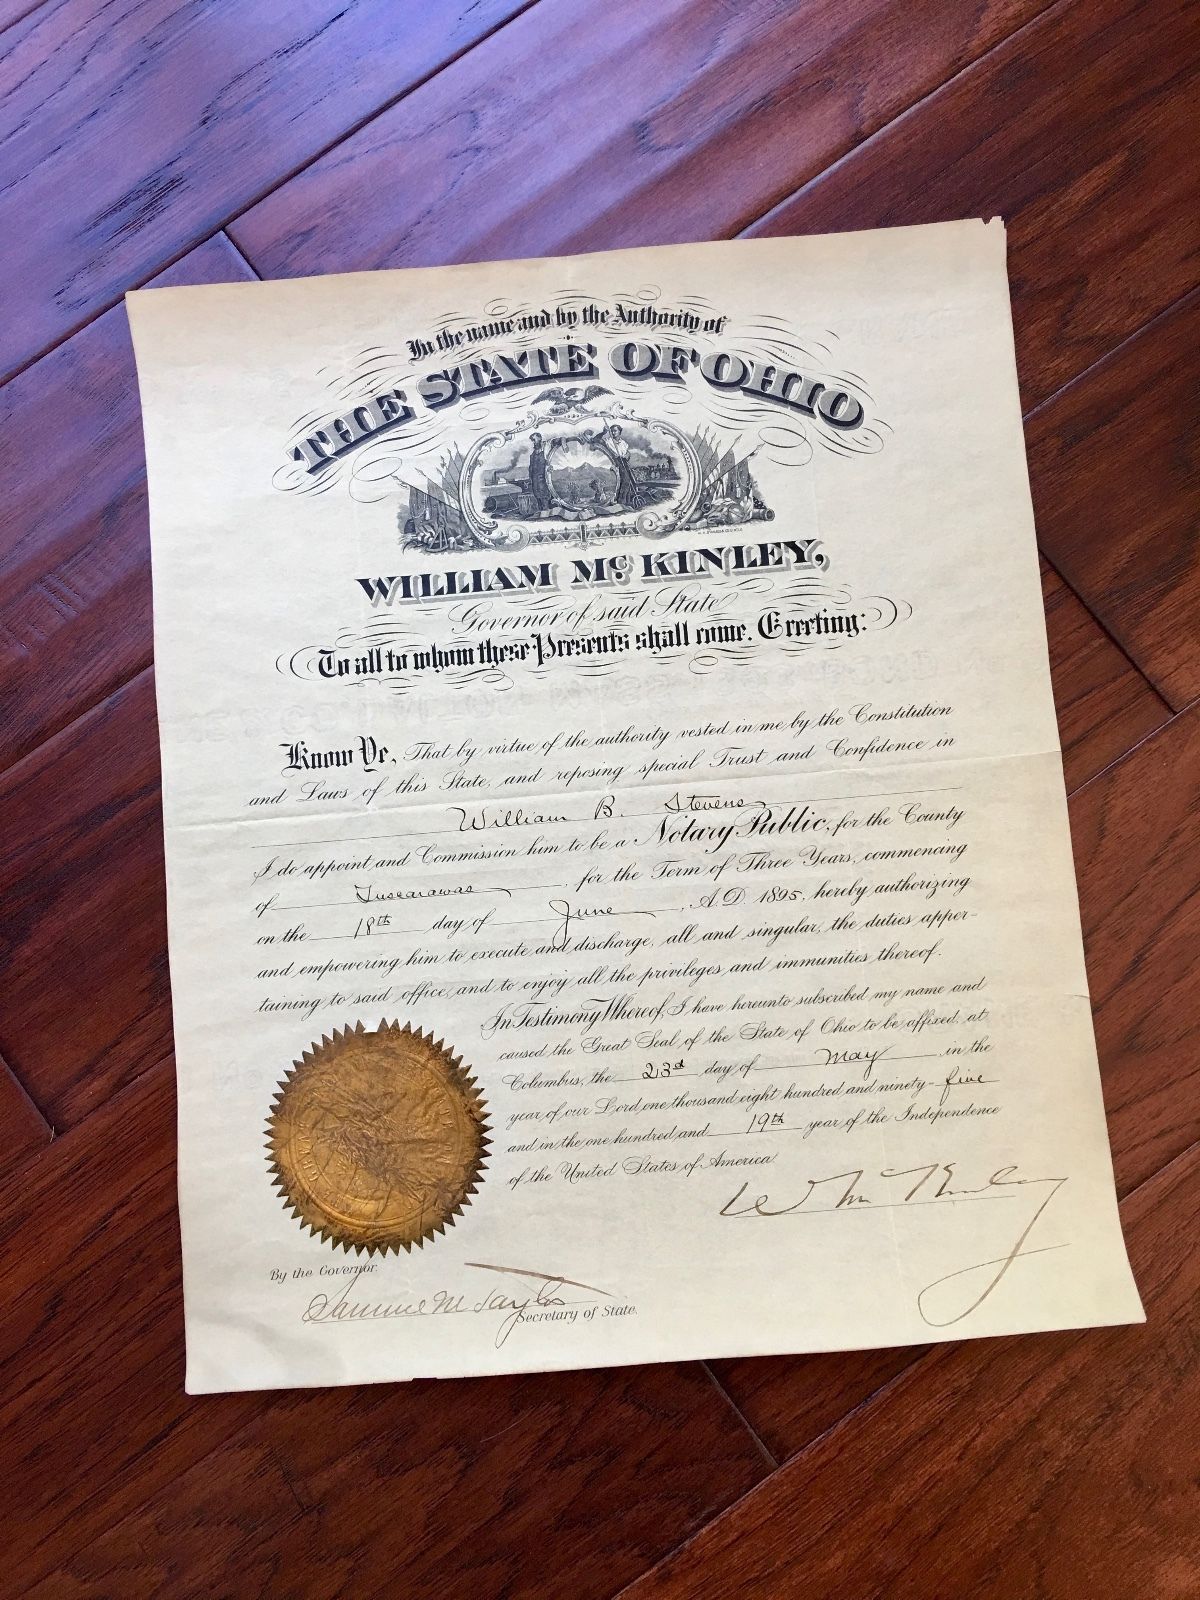 In the name and by the Authority of
THE STATE OF OHIO
WILLIAM McKINLEY,
Governor of said State
To all to whom these Presents shall come, Greeting:
Know Ye, That by virtue of the authority vested in me by the Constitution
and Laws of this State, and reposing special Trust and Confidence in
William B. Stevens
I do appoint and Commission him to be a Notary Public, for the County
of Tuscarawas, for the Term of Three Years, commencing
on the 18th day of June, A.D. 1895, hereby authorizing
and empowering him to execute and discharge, all and singular, the duties apper-
taining to said office, and to enjoy all the privileges and immunities thereof.
In Testimony Whereof, I have hereunto subscribed my name and
caused the Great Seal of the State of Ohio to be affixed, at
Columbus, the 23d day of May in the
year of our Lord one thousand eight hundred and ninety-five
and in the one hundred and 19th year of the Independence
of the United States of America.
Wm McKinley
By the Governor:
Samuel M Taylor
Secretary of State.